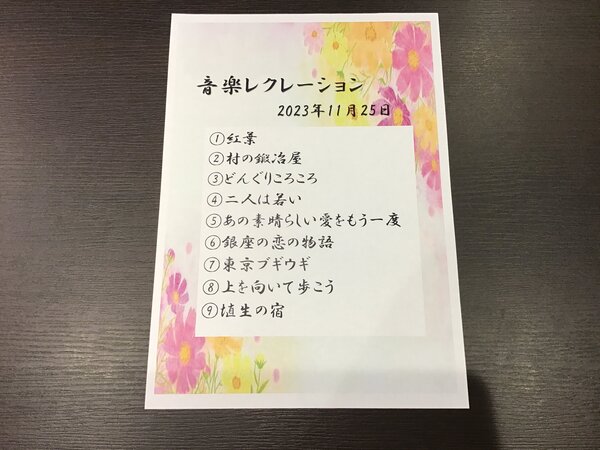 音楽レクレーション
2023年11月25日
①紅葉
②村の鍛冶屋
③どんぐりころころ
④二人は若い
⑤あの素晴らしい愛をもう一度
⑥銀座の恋の物語
⑦東京ブギウギ
⑧上を向いて歩こう
⑨埴生の宿